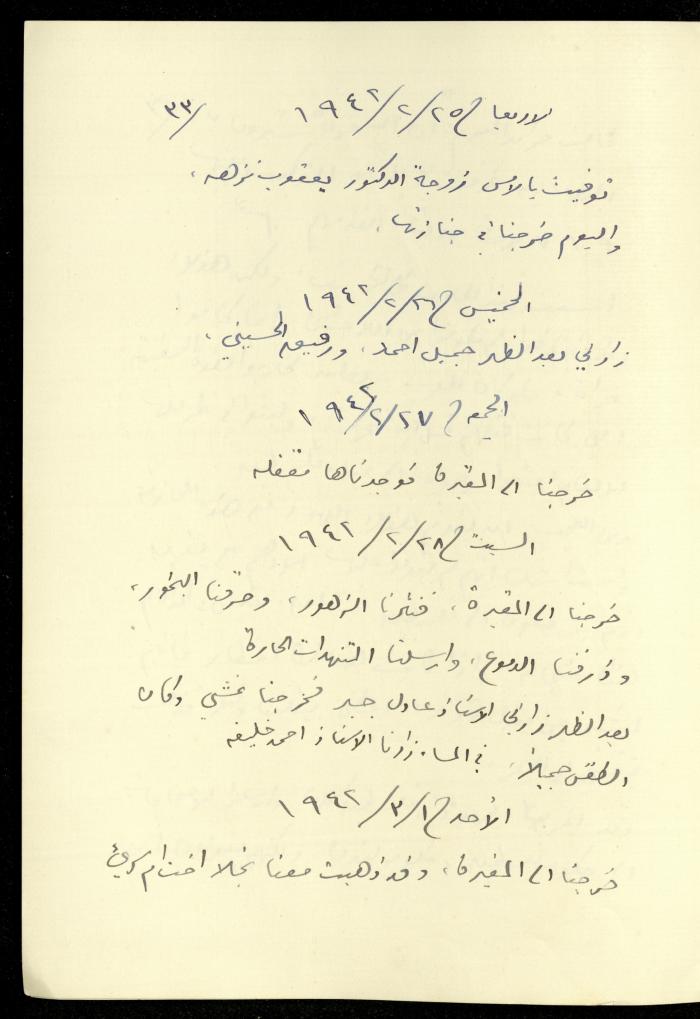 الاربعا ٢٥/٢/١٩٤٢ /٣٣
توفيت بالامس زوجة الدكتور يعقوب نزهه،
واليوم خرجنا في جنازتها.
الخميس ٢٦/٢/١٩٤٢
زارني بعد الظهر جميل احمد، ورفيق الحسيني،
الجمعه ٢٧/٢/١٩٤٢
خرجنا الى المقبرة فوجدناها مقفله
السبت ٢٨/٢/١٩٤٢
خرجنا الى المقبرة، فنثرنا الزهور، وحرقنا البخور،
وذرفنا الدموع، وارسلنا التنهدات الحارة
بعد الظهر زارني الاستاذ عادل جبر فخرجنا نمشي وكان
الطقس جميلاً، في المساء زارنا الاستاذ احمد خليفه
الأحد ١/٣/١٩٤٢
خرجنا الى المقبرة، وقد ذهبت معنا نجلا اخت ام سري